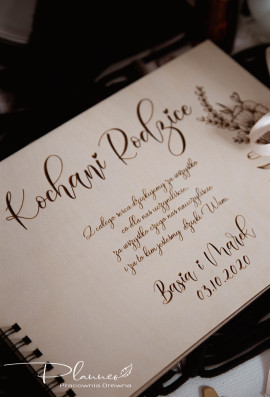 Kochani Rodzice
Z całego serca dziękujemy za wszystko
co dla nas uczyniliście,
za wszystko czego nas nauczyliście
i za to kim jesteśmy dzięki Wam.
Basia i Marek
03.10.2020
Planneo
Pracownia Drewna